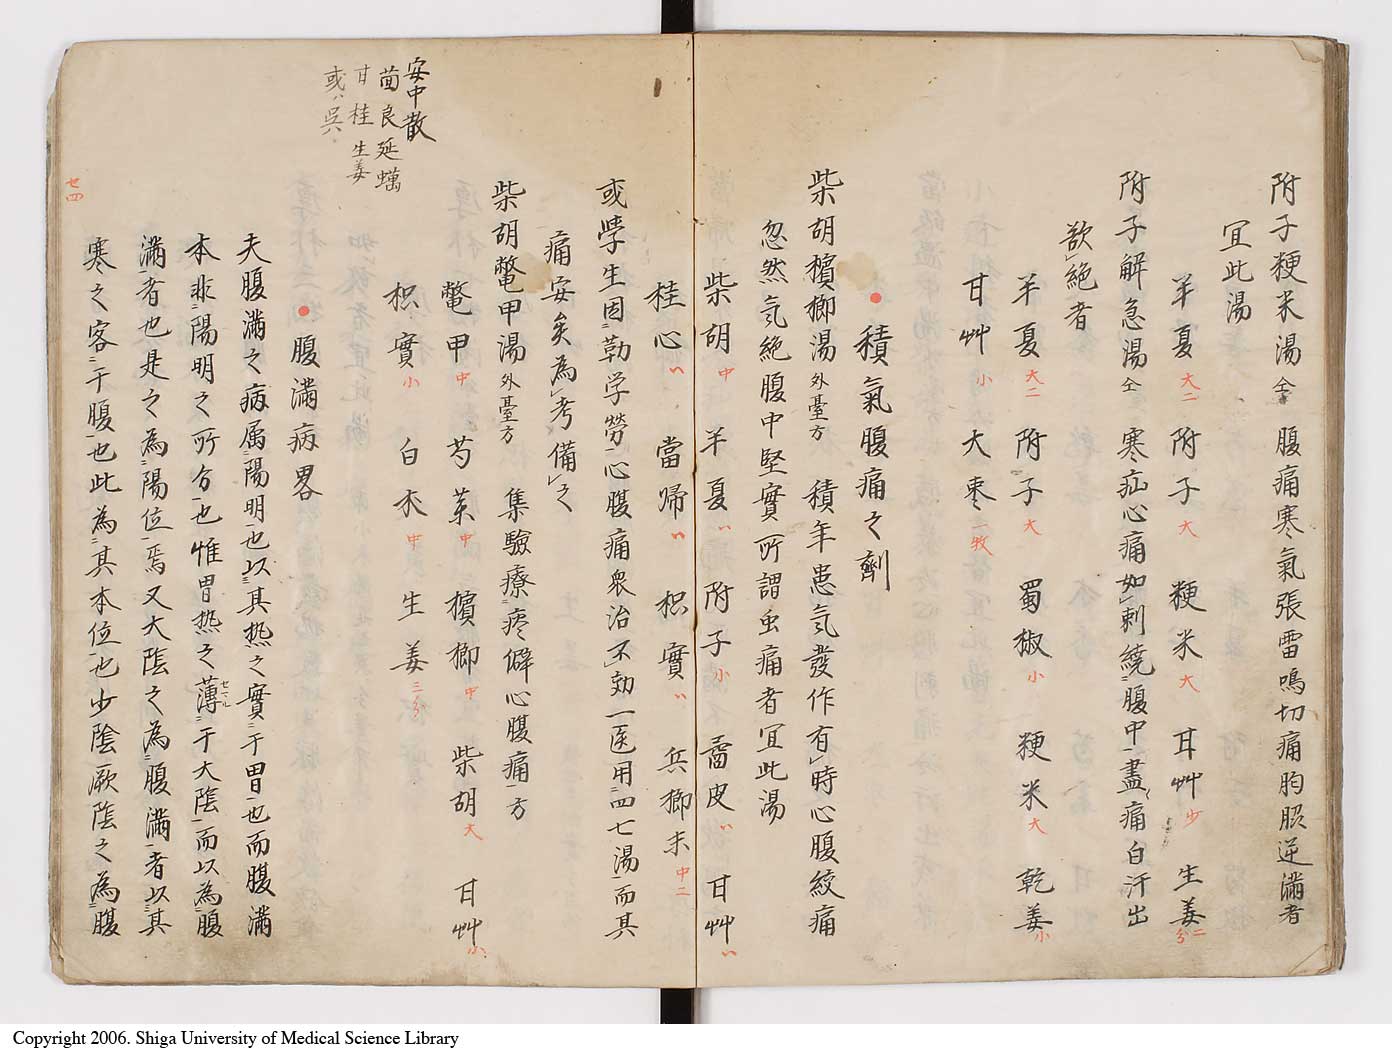 附子粳米湯 仝 腹痛寒氣張雷鳴切痛胸脇逆滿者
宜此湯
半夏 大二 附子 大 粳米 大 甘艸 少 生姜 二分
附子解急湯 仝 寒疝心痛如刺繞腹中一盡痛白汗出
欲絶者
半夏 大二 附子 大 蜀椒 小 粳米 大 乾姜 小
甘艸 小 大棗 一枚
積氣腹痛之劑
柴胡檳榔湯 外臺方 積年患気發作有時心腹絞痛
忽然気絶腹中堅實所謂虫痛者宜此湯
柴胡 中 半夏 〃 附子 小 皮 〃 甘艸 〃
桂心 〃 當帰 〃 枳實 〃 兵榔末 中二
或学生因勤学勞心腹痛衆治不効一医用四七湯而其
痛安矣為考備之
柴胡鼈甲湯 外臺方 集驗療疼癖心腹痛方
鼈甲 中 芍薬 中 檳榔 中 柴胡 大 甘艸 小
枳實 小 白朮 中 生姜 三分
腹滿病畧
夫腹滿之病属陽明也以其热之實于胃也而腹滿
本非陽明之所分也惟胃热之薄セマル于大陰而以為腹
滿者也是之為陽位焉又大陰之為腹滿者以其
寒之客于腹也此為其本位也少陰厥陰之為腹
安中散
茴良延蠣
甘桂生姜
或ハ呉
廿四
Copyright 2006. Shiga University of Medical Science Library